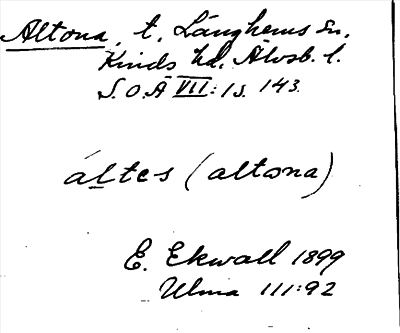 Altona, t. Länghems sn,
Kinds hd, Älvsb. l.
S.O.Ä VII:1 s. 143.
áltes (altona)
E. Ekwall 1899
Ulma 111:92